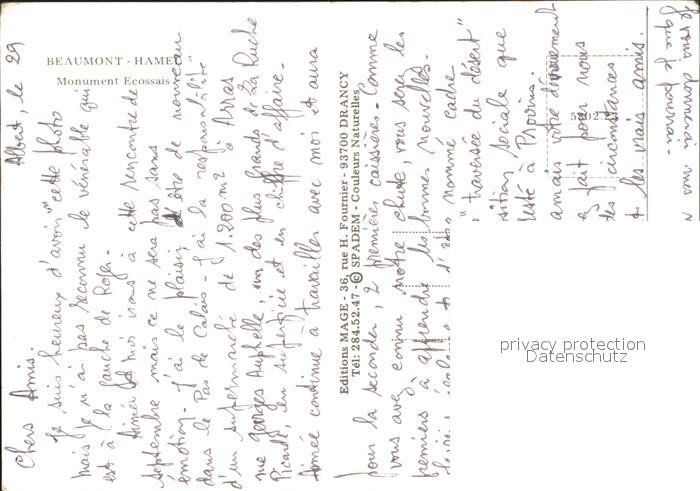 BEAUMONT - HAMEL
Monument Ecossais
Albert, le 29
Chers Amis.
Je suis heureux d'avoir cette photo
mais je n'ai pas reconnu le vénérable qui
est à la gauche de Roger.
Aimée et moi irons à cette rencontre de
septembre mais ce ne sera pas sans
émotion. J'ai le plaisir d'être de nouveau
dans le Pas de Calais. J'ai la responsabilité
d'un supermarché de 1.200 m2 à Arras
rue Georges Auphelle, un des plus grands de La Ruche
Picarde, en superficie et en chiffre d'affaire.
Aimée continue à travailler avec moi et aura
Editions MAGE - 36, rue H. Fournier - 93700 DRANCY
Tél: 284.52.47 - © SPADEM - Couleurs Naturelles
pour la seconder, 2 premières caissières. Comme
vous avez connu notre chute, vous serez les
premiers à apprendre les bonnes nouvelles.
nommé cadre
"traversée du désert"
sition sociale que
testé à Provins.
amais votre dévouement
fait pour nous
des circonstances
les vrais amis.
Je vous donnerai mes
que je pourrai.
privacy protection
Datenschutz